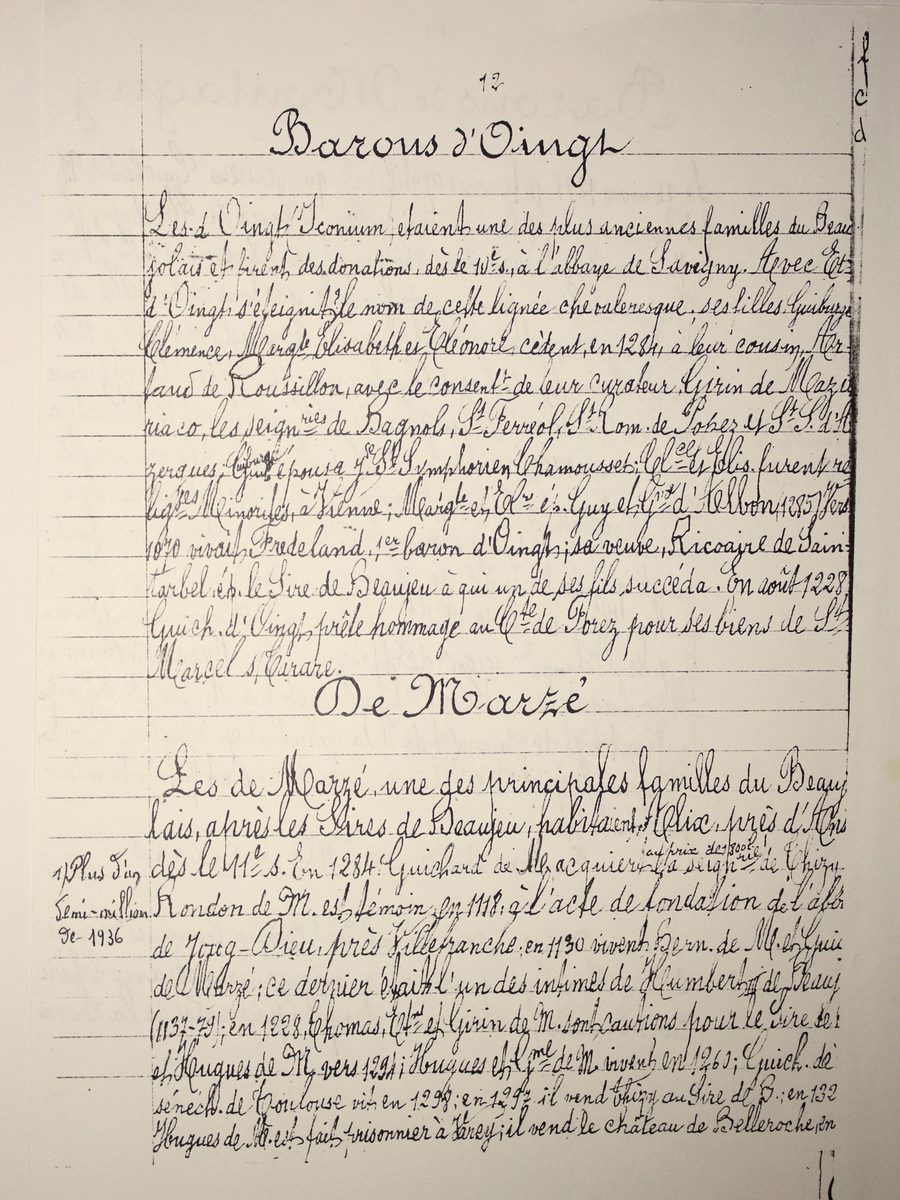 12
f
c
d
Barons d'Oingt
Les d'Oingt "Iconium" étaient une des plus anciennes familles du Beau
jolais et firent des donations, dès le 10e s., à l'abbaye de Savigny. Avec
d'Oingt s'éteignit le nom de cette lignée chevaleresque. ses filles Guiburge
Clémence, Margte Elisabeth et Eléonore, cèdent, en 1284, à leur cousin, Ar-
taud de Roussillon, avec le consentt de leur curateur Girin de Mazi
riaco, les seignries de Bagnols, St Ferréol, St Rom. de Popez et St J. d'A
zergues; épousa St Symphorien Chamousset; Clce et Elis. furent re
ligses Minorites, à Vienne; Margte et Elre ép. Guy et d'Albon, (1285) Vers
1070 vivait Fredeland, 1er baron d'Oingt; sa veuve, Ricoaire de Sain-
Tarbel, ép. le Sire de Beaujeu à qui un de ses fils succéda. En août 1228
Guich. d'Oingt, prête hommage au Cte de Forez pour ses biens de St
Marcel s, Tarare.
De Marzé
Les de Marzé, une des principales familles du Beauj
lais, après les Sires de Beaujeu, habitaient, Alix, près d'Ans
au prix de 800l
dès le 11e s. En 1284 Guichard de M. acquiert la seignrie de Thizy.
1) Plus d'un
demi-million
de 1936
Rondon de M. est témoin, en 1118, à l'acte de fondation de l'abb
de Joug-Dieu, près Villefranche; en 1130 vivent Bern. de M. et Gui
de Marzé; ce dernier était l'un des intimes de Humbert III de Beauj
(1137-79); en 1228, Thomas, et Girin de M. sont cautions pour le Sire de
et Hugues de M. vers 1294; Hugues et Gme de M. vivent en 1260; Guich. de
sénéch. de Toulouse vit en 1298; en 1297 il vend Thizy au Sire de B.; en 132
Hugues de M. est fait prisonnier à Varey; il vend le château de Belleroche, en